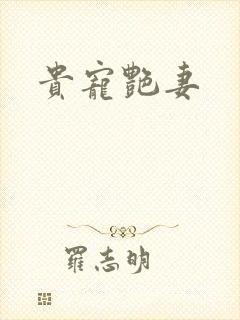 貴寵艷妻
羅志明